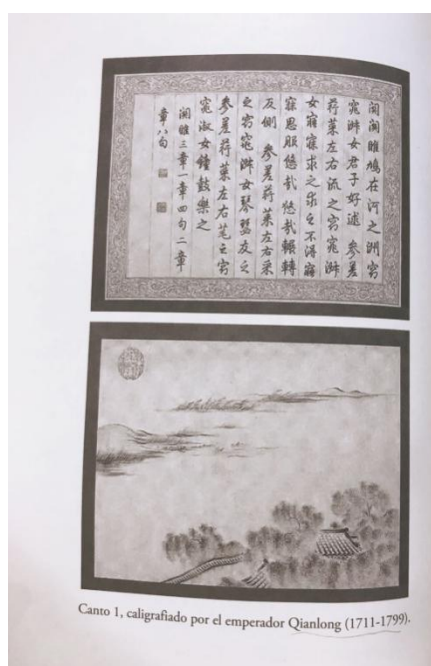 關關雎鳩在河之洲窈
窕淑女君子好逑 參差
荇菜左右流之窈窕淑
女寤寐求之求之不得寤
寐思服悠哉悠哉輾轉
反側 參差荇菜左右采
之窈窕淑女琴瑟友之
參差荇菜左右芼之窈
窕淑女鐘鼓樂之
關雎三章一章四句二章
章八句
Canto 1, caligrafiado por el emperador Qianlong (1711-1799).